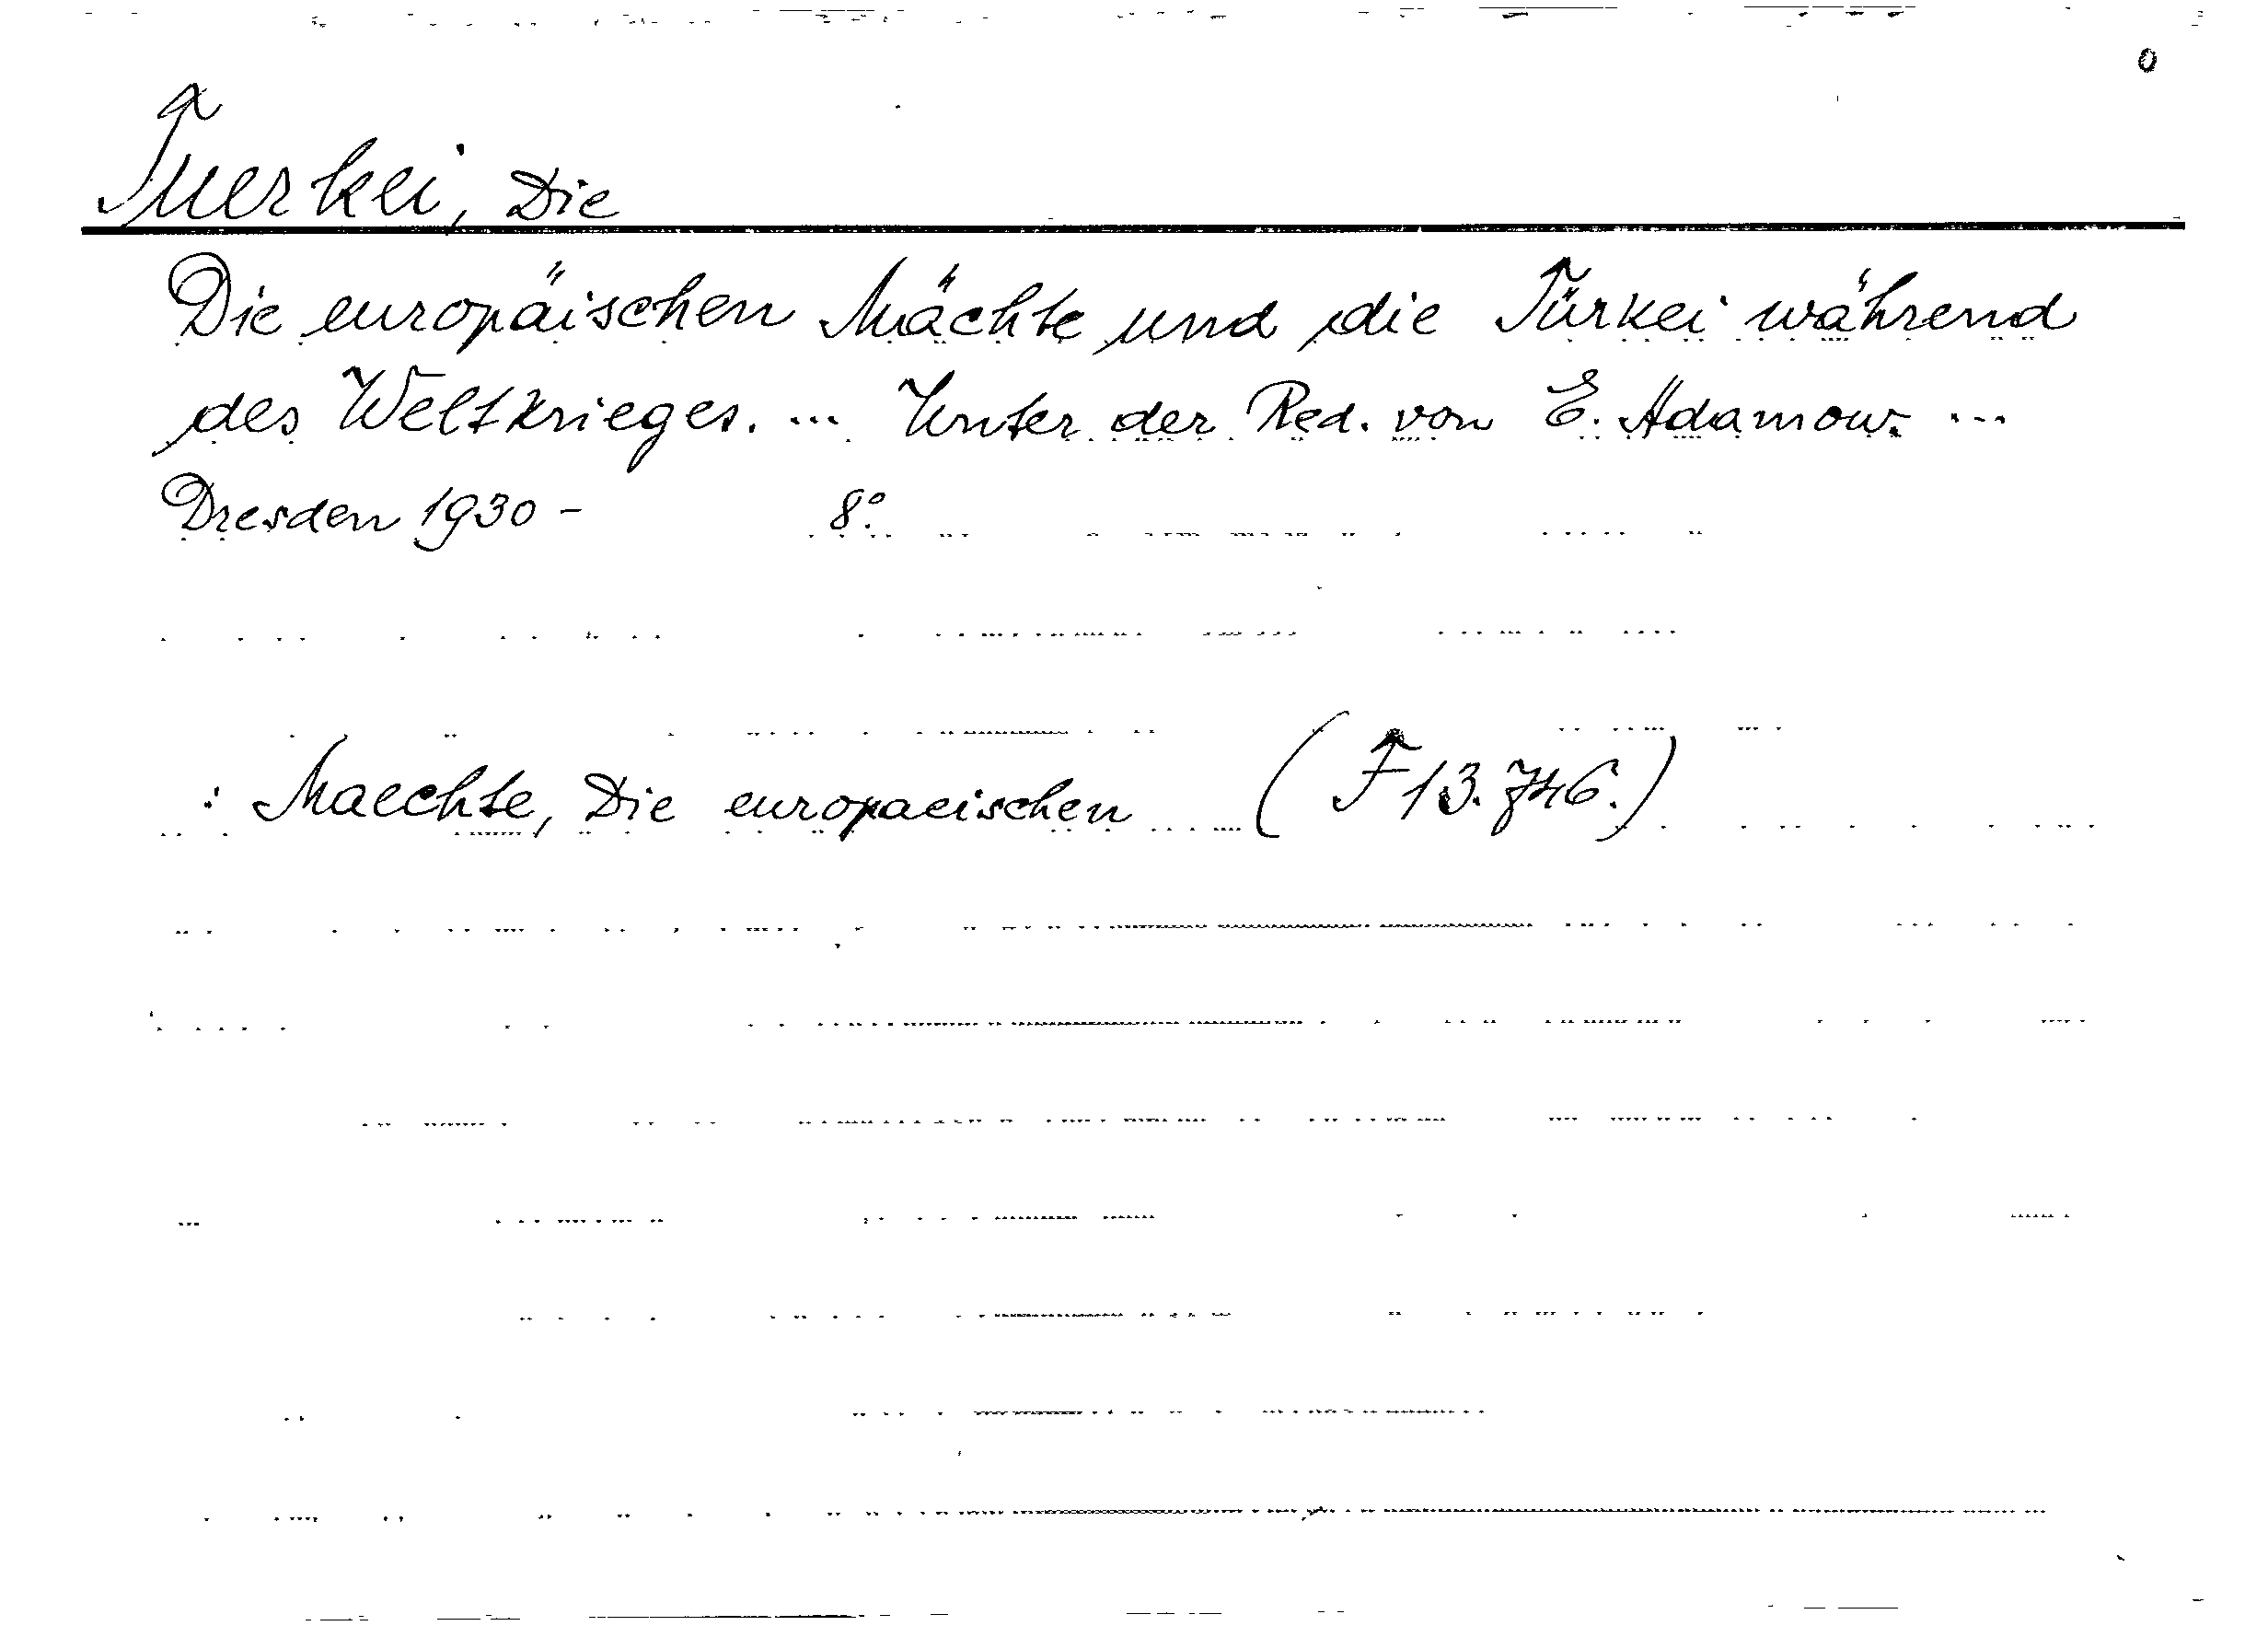 0
Tuerkei, Die
Die europäischen Mächte und die Türkei während
des Weltkrieges. ... Unter der Red. von E. Adamow. ...
Dresden 1930 - 8°.
: Maechte, Die europaeischen (F 13.746.)